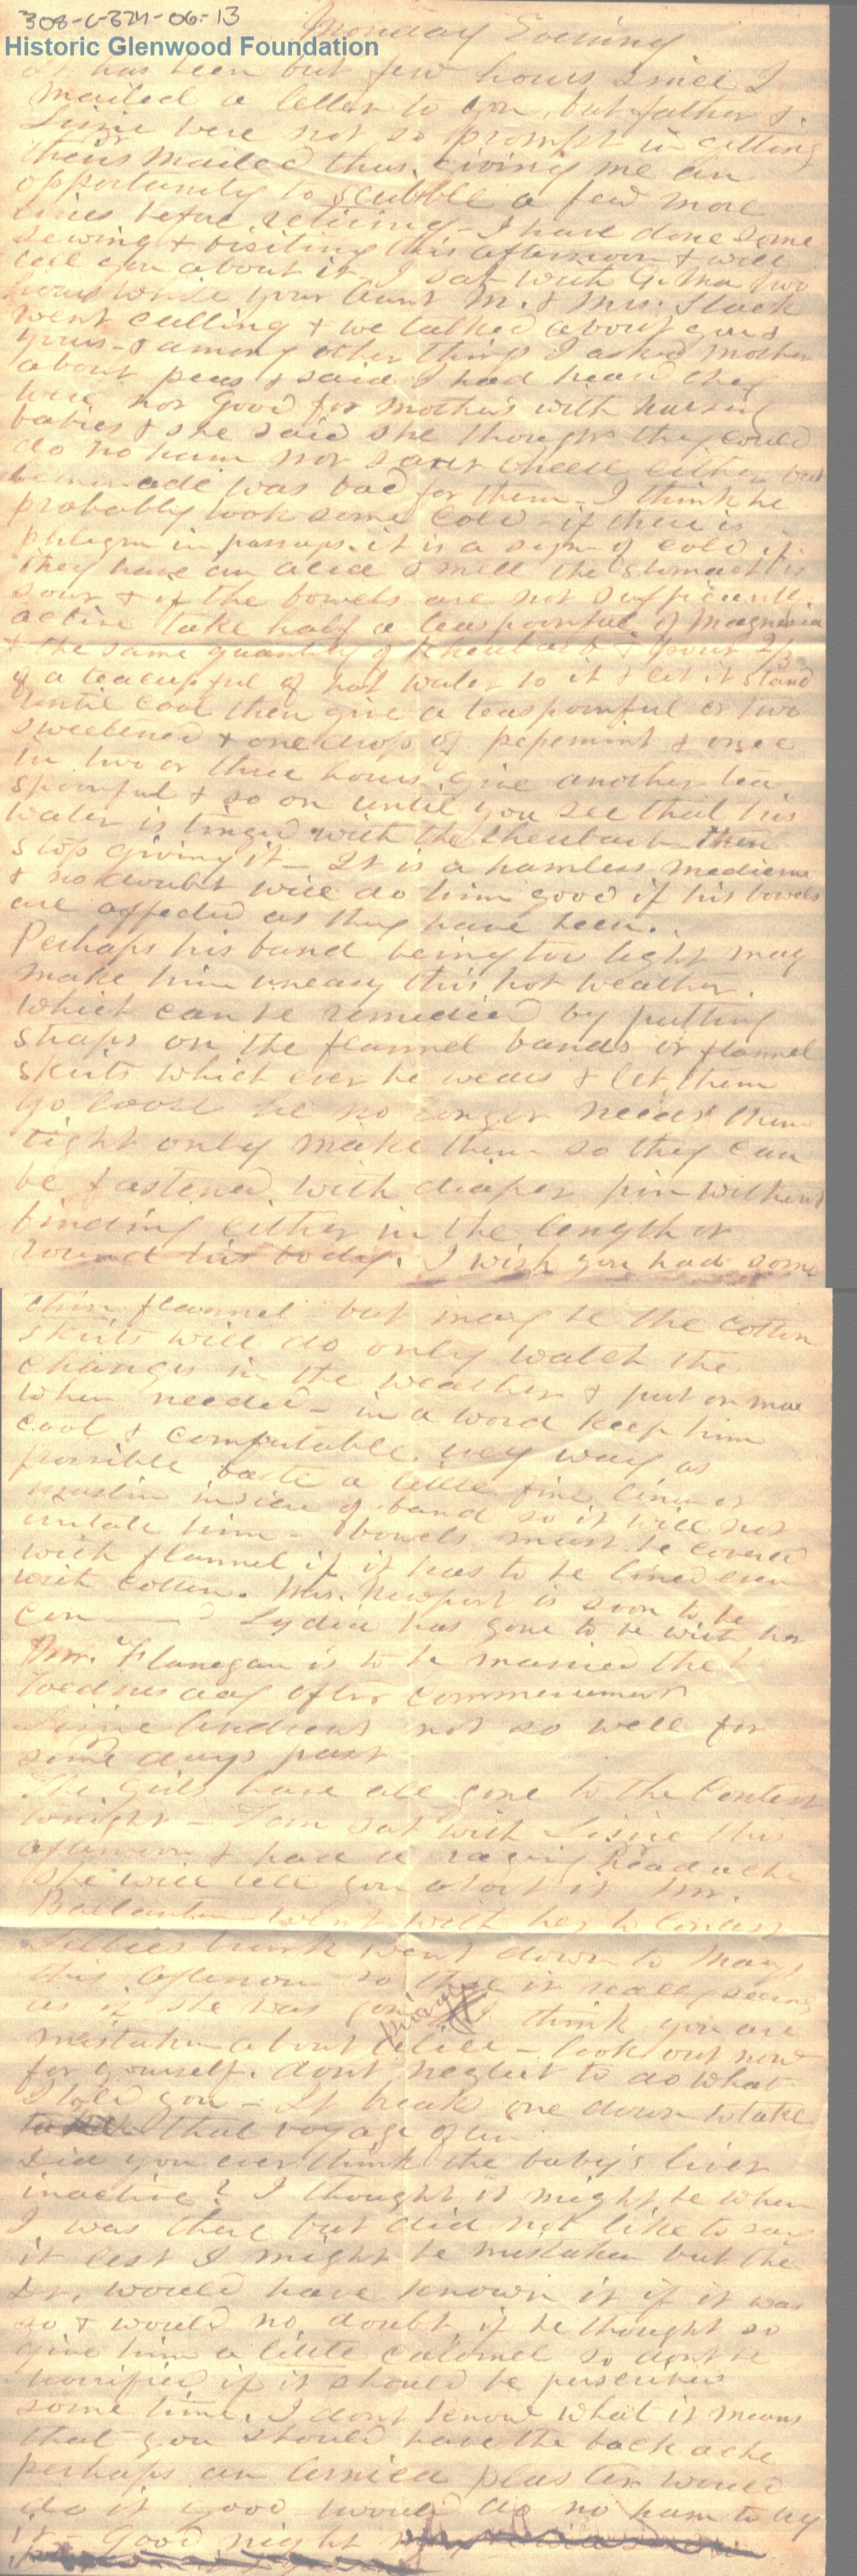 308-C-321-06-13
Historic Glenwood Foundation
Monday Evening
It has been but few hours since I
mailed a letter to you, but father &
Lizzie were not so prompt in getting
theirs mailed thus giving me an
opportunity to scribble a few more
lines before retiring - I have done some
sewing & visiting this afternoon & will
tell you about it I sat with G. Ma two
hours while your Aunt M. & Mrs. Slack
went calling & we talked about you &
yours - & among other things I asked Mother
about peas & said I had heard they
were not good for mothers with nursing
babies & she said she thought they could
do no harm nor sour cheese either but
lemonade was bad for them - I think he
probably took some cold - if there is
phlegm in passages it is a sign of cold if
they have an acid smell the stomach is
sour & if the bowels are not sufficiently
active take half a teaspoonful of Magnesia
& the same quantity of Rheubarb & pour 2/3
of a teacup ful of hot water to it & let it stand
until cool then give a teaspoonful or two
sweetened & one drop of pepemint & once
in two or three hours give another tea
spoonful & so on until you see that his
water is tinged with the rheubarb then
stop giving it - It is a harmless medicine
& no doubt will do him good if his bowels
are affected as they have been.
Perhaps his band being too tight may
make him uneasy this hot weather.
Which can be remedied by putting
straps on the flannel bands or flannel
skirts which ever he wears & let them
go loose he no longer needs them
tight only make them so they can
be fastened with diaper pin without
binding either in the length or
round his body. I wish you had some
thin flannel but may be the cotton
skirts will do only watch the
changes in the weather & put on more
when needed - in a word keep him
cool & comfortable every way as
possible baste a little fine linen or
muslin inside of band so it will not
irritate him - bowels must be covered
with flannel if it has to be lined even
with cotton. Mrs. Newport is soon to be
con——— Lydia has gone to be with her
Mr. Flanegan is to be married the
Wednesday after Commencement
Lizzie Andrews not so well for
some days past
The girls have all gone to the Contest
tonight - Tom sat with Lizzie this
afternoon & had a raging headache
She will tell you about it Mr.
Ballantine went with her to Concert
Lillies trunk went down to Mays
this afternoon so that it really seems
as if she was going I think you are
mistaken about Alice - look out now
for yourself. dont neglect to do what
I told you - It breaks one down to take
that voyage often
Did you ever think the baby's liver
inactive? I thought it might be when
I was there but did not like to say
it lest I might be mistaken but the
Dr. would have known it if it was
so & would no doubt if he thought so
give him a little calomel so dont be
horrified if it should be perscribed
some time. I dont know what it means
that you should have the back ache
perhaps an arnica plaster would
do it good would do no harm to try
it - Good night